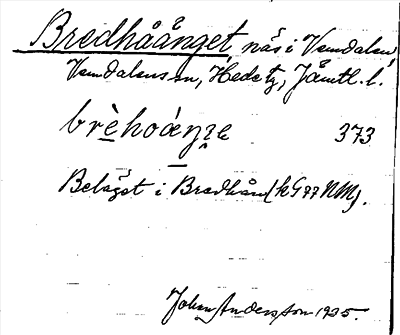 Bredhåånget, näs i Vemdalen,
Vemdalens sn, Hede tg, Jämtl. l.
brèhoáŋɪe 373
Beläget i Bredhån (h G 77 NM).
Johan Andersson 1935.